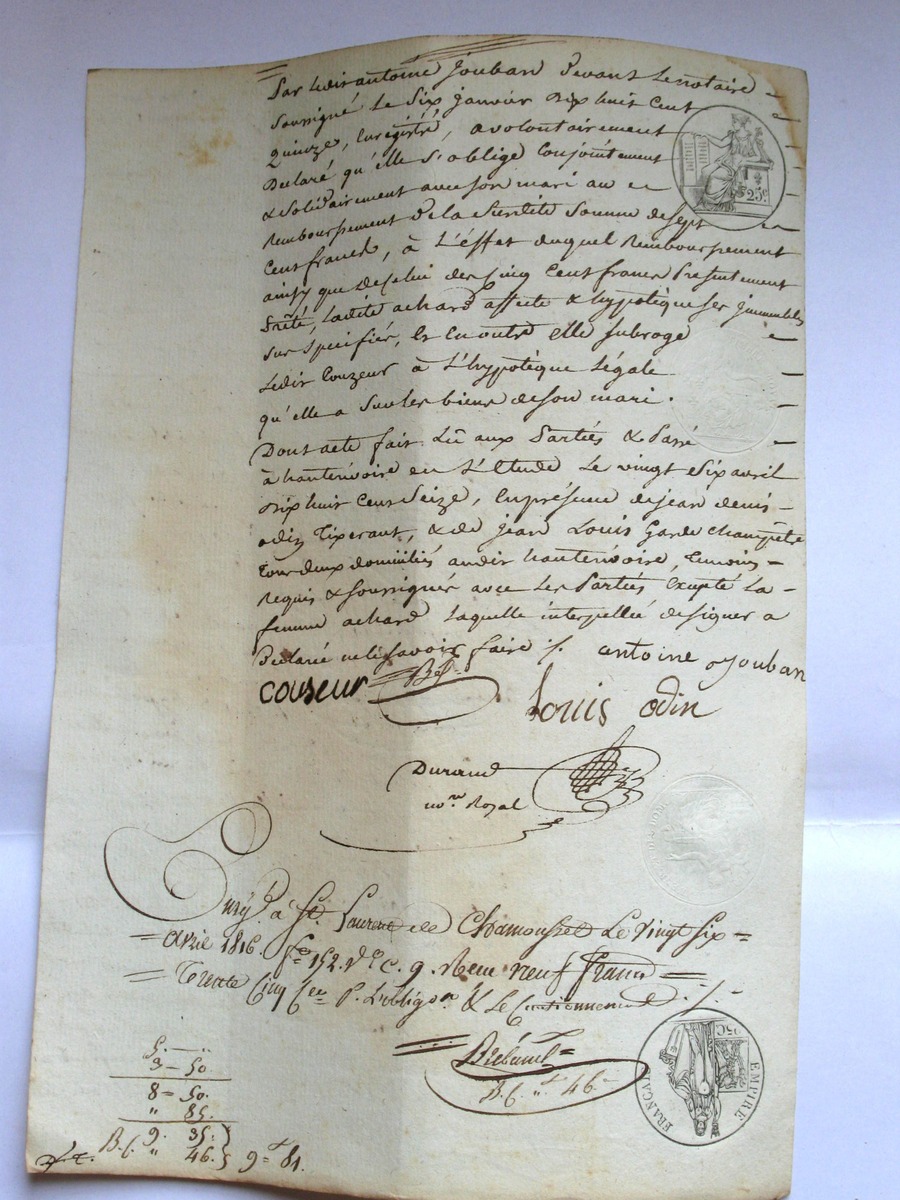 Par ledit antoine Jouban devant le notaire
soussigné le six janvier dix huit cent
quinze, enregistré, a volontairement
declaré qu'elle s'oblige conjointement
& solidairement avec son mari au
remboursement de la susdite somme de sept
cent francs, à l'effet duquel remboursement
ainsy que de celui des cinq cent francs presentement
prêté, ladite achard affecte & hypotèque ses immeubles
sus specifiés, et en outre elle subroge
ledit Couzeur à l'hypotèque légale
qu'elle a sur les biens de son mari.
Dont acte fait lû aux Parties & Passé
à hauterivoire en l'Etude le vingt six avril
dix huit cent seize, en présence de jean denis
odin Tixerant, & de jean Louis Garde champetre
tous deux domiciliés audit hauterivoire, temoins
requis & soussignés avec les Parties excepté la
femme achard laquelle interpellée de signer a
declaré ne le savoir faire ./. antoine Jouban
couseur
Louis odin
Durand
no.re Royal
25c.
Enrg.é à St. Laurent de Chamousset le vingt six
avril 1816. f.o 152. v.o c. 9. Reçu neuf francs
trente cinq c.es P. l'oblig.on & le Cautionnement ./.
B.f. " 46
5. — "
3 — 50
8 — 50.
" 85.
9. 35.
B.f. " 46. 9 81.
25C
EMPIRE FRANÇAIS